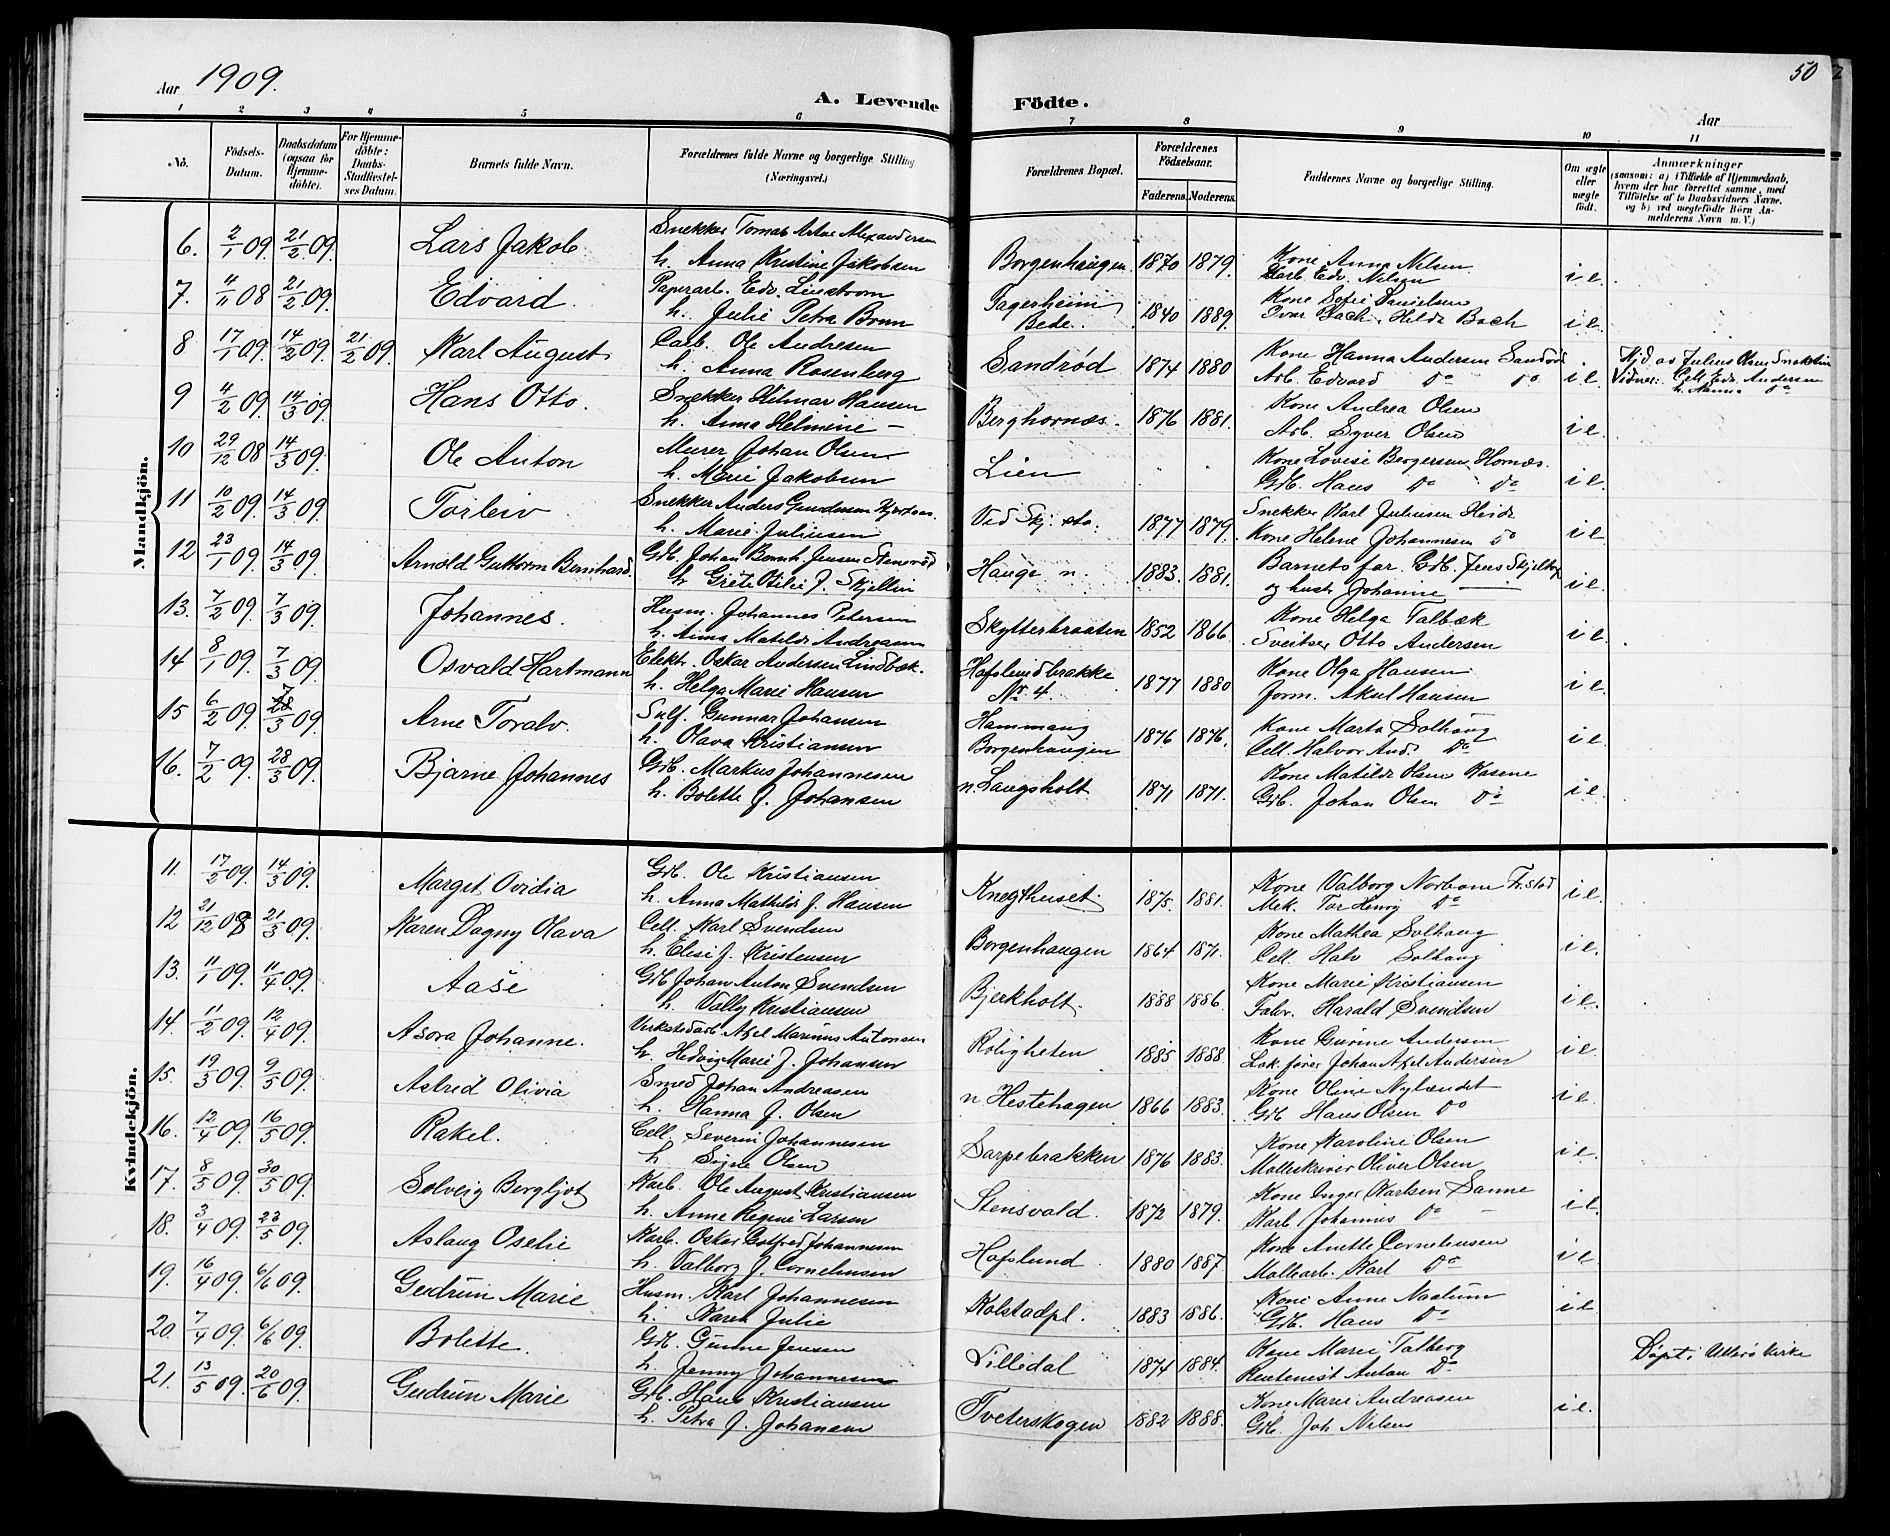 Aar 1909.
A. Levende Födte.
50
Aar
1 2 3 4 5 6 7 8 9 10 11
No. | Födsels-Datum. | Daabsdatum (ogsaa for Hjemme-döbte). | For Hjemme-döbte: Daabs-Stadfæstel-ses Datum. | Barnets fulde Navn. | Forældrenes fulde Navne og borgerlige Stilling. (Næringsvei.) | Forældrenes Bopæl. | Forældrenes Födselsaar. Faderens. Moderens. | Faddernes Navne og borgerlige Stilling. | Om ægte eller uægte födt. | Anmærkninger (saasom: a) i Tilfælde af Hjemmedaab, hvem der har forrettet samme, med Tilföielse af to Daabsvidners Navne, og b) ved uægtefödte Börn Anmelderens Navn m. V.)
Mandkjön.
6. 2/1 09. 21/2 09. Lars Jakob. Snekker Tomas Artur Alexandersen h. Anna Kristine Jakobsen Borgenhaugen 1870 1879. Kone Anna Nilsen Edv. Nilsen i e.
7. 4/11 08 21/2 09. Edvard. Paperarb. Edv. Linstrøm h. Julie Petra Brun Fagerheim Bede. 1840 1889. Kone Sofie Danielsen Ivar Bach, Hilda Bach i e.
8 17/1 09. 14/2 09. 21/2 09. Karl August Carb. Ole Andresen h. Anna Rosenberg Sandrød 1874 1880 Kone Hanna Andersen Sandrød Arb. Edvard Do Do i e. Hjd. av Julius Olsen Vidner: Cell. Edv. Andersen h. Hanna Do
9 4/2 09. 14/3 09. Hans Otto. Snekker Hilmar Hansen h. Anna Helmine — Berghornæs. 1876 1881. Kone Andrea Olsen Arb. Syver Olsen i e.
10 29/12 08 14/3 09. Ole Anton Murer Johan Olsen h. Marie Jakobsen Lien Kone Lovise Bergersen Hornæs. Gdb. Hans Do Do i e.
11 10/2 09. 14/3 09. Torleiv Snekker Anders Gundersen h. Marie Juliusen Ved Skj. sta. 1877 1879. Snekker Karl Juliusen Heide Kone Helene Johannesen Do i e.
12 23/1 09. 14/3 09. Arnold Guttorm Bernhard. Gdb. Johan Bernh. Jensen Stensrød h. Gjete Otilie J. Skjellin Hauge n. 1883. 1881. Barnets far. Gdb. Jens og hustr. Johanne — i e.
13. 7/2 09. 7/3 09. Johannes. Husm. Johannes Petersen h. Anna Matilde Andreasen Skytterbraaten 1852 1866. Kone Helga Talbæk Sveitser Otto Andersen i e.
14 8/1 09. 7/3 09. Osvald Hartmann Elekt. Oskar Andersen Lindbæk. h. Helga Marie Hansen Hafslundbrakke Nr. 4. 1877 1880 Kone Olga Hansen form. Aksel Hansen i e.
15 6/2 09. 7/3 09. Arne Toralv. Sulf. Gunnar Johansen h. Olava Kristiansen Hammang Borgenhaugen 1876 1876. Kone Marta Solhaug Cell. Halvor And. Do i e.
16. 7/2 09. 28/3 09. Bjarne Johannes Gdb. Markus Johannesen h. Bolette J. Johansen n. Langsholt 1871 1871. Kone Matilde Olsen Kasene Gdb. Johan Olsen Do i e.
Kvindekjön.
11. 17/2 09. 14/3 09. Margit Ovidia Gdb. Ole Kristiansen h. Anna Mathilde J. Hansen Knegthuset 1875. 1881. Kone Valborg Norbone Fr.stad Mek. Tor Henry Do i e.
12 21/12 08 21/3 09. Karen Dagny Olava Cell. Karl Svendsen h. Elise J. Kristensen Borgenhaugen 1864 1871. Kone Mathea Solhaug Cell. Halv Solhaug i e.
13. 11/1 09. 11/4 09. Aase Gdb. Johan Anton Svendsen h. Vally Kristiansen Bjerkholt. 1888 1886. Kone Marie Kristiansen Fabr. Harald Svendsen i e.
14. 11/2 09. 12/4 09. Asora Johanne. Verkstedarb. Axel Marinus Antonsen h. Hedvig Marie J. Johansen Roligheten 1885 1888. Kone Gurine Andersen Lok.fører Johan Axel Andersen i e.
15. 19/3 09. 9/5 09. Astrid Olivia Smed Johan Andreasen h. Hanna J. Olsen n. Hestehagen 1866 1883. Kone Oline Nylændet Gdb. Hans Olsen Do i e.
16. 12/4 09. 16/5 09. Rakel. Cell. Severin Johannesen h. Signe Olsen Sarpebrakken 1876 1883. Kone Karoline Olsen Olivér Olsen i e.
17. 8/5 09. 30/5 09. Solveig Bergljot Karb. Ole August Kristiansen h. Anne Regine Larsen Stensvald. 1872 1879. Kone Inger Karlsen Sanne Karb. Johannes Do — i e.
18. 3/4 09. 23/5 09. Aslaug Oselie Karb. Oskar Gotfred Johannesen h. Valborg J. Cornelinsen Hafslund. 1880 1887. Kone Anette Corneliusen Karl Do i e.
19. 16/4 09. 6/6 09. Gudrun Marie Husm. Karl Johannesen h. Karen Julie Kolstadpl. 1883 1886. Kone Anne Naalum Gdb. Hans Do i e.
20. 7/4 09. 6/6 09. Bolette. Gdb. Gunne Jensen h. Jenny Johannesen Lilledal 1874 1884. Kone Marie Talberg Rentenist Anton Do Døpt i Ullerø Kirke
21. 13/5 09. 20/6 09. Gudrun Marie Gdb. Hans Kristiansen h. Petra J. Johansen Tveterskogen 1882 1888. Kone Marie Andreasen Gdb. Joh Nilsen i e.